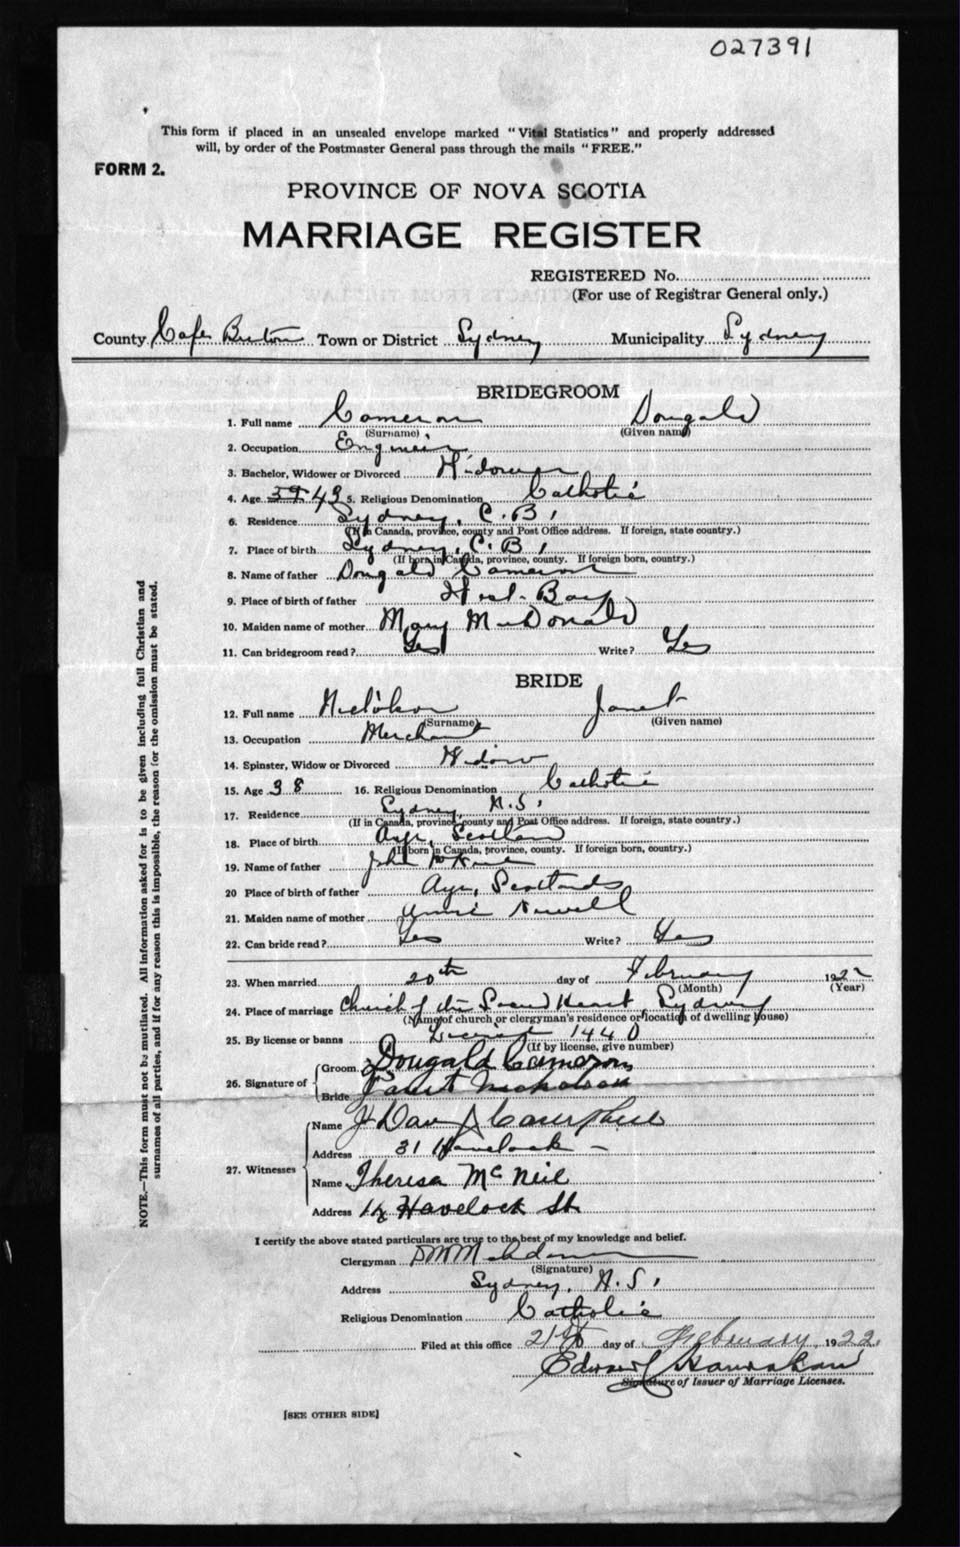 027391
This form if placed in an unsealed envelope marked "Vital Statistics" and properly addressed
will, by order of the Postmaster General pass through the mails "FREE."
FORM 2.
PROVINCE OF NOVA SCOTIA
MARRIAGE REGISTER
REGISTERED No.
(For use of Registrar General only.)
County Cape Breton Town or District Sydney Municipality Sydney
BRIDEGROOM
1. Full name Cameron Dougald
(Surname) (Given name)
2. Occupation Engineer
3. Bachelor, Widower or Divorced Widower
4. Age 39 43 5. Religious Denomination Catholic
6. Residence Sydney, C.B.
(If in Canada, province, county and Post Office address. If foreign, state country.)
7. Place of birth Sydney, C.B.
(If born in Canada, province, county. If foreign born, country.)
8. Name of father Dougald Cameron
9. Place of birth of father West Bay
10. Maiden name of mother Mary McDonald
11. Can bridegroom read? Yes Write? Yes
BRIDE
12. Full name Nicholson Janet
(Surname) (Given name)
13. Occupation Merchant
14. Spinster, Widow or Divorced Widow
15. Age 38 16. Religious Denomination Catholic
17. Residence Sydney, N.S.
(If in Canada, province, county and Post Office address. If foreign, state country.)
18. Place of birth Ayr, Scotland
(If born in Canada, province, county. If foreign born, country.)
19. Name of father John
20 Place of birth of father Ayr, Scotland
21. Maiden name of mother Annie Newell
22. Can bride read? Yes Write? Yes
23. When married 20th day of February 1922
(Month) (Year)
24. Place of marriage Church of the Sacred Heart, Sydney
(Name of church or clergyman's residence or location of dwelling house)
25. By license or banns License 1440
(If by license, give number)
26. Signature of Groom Dougald Cameron
Bride Janet Nicholson
27. Witnesses Name Campbell
Address 31 Havelock
Name Theresa McNeil
Address Havelock St
I certify the above stated particulars are true to the best of my knowledge and belief.
Clergyman
(Signature)
Address Sydney, N.S.
Religious Denomination Catholic
Filed at this office 21st day of February 1922
Edward
Signature of Issuer of Marriage Licenses.
[SEE OTHER SIDE]
NOTE.—This form must not be mutilated. All information asked for is to be given including full Christian and
surnames of all parties, and if for any reason this is impossible, the reason for the omission must be stated.